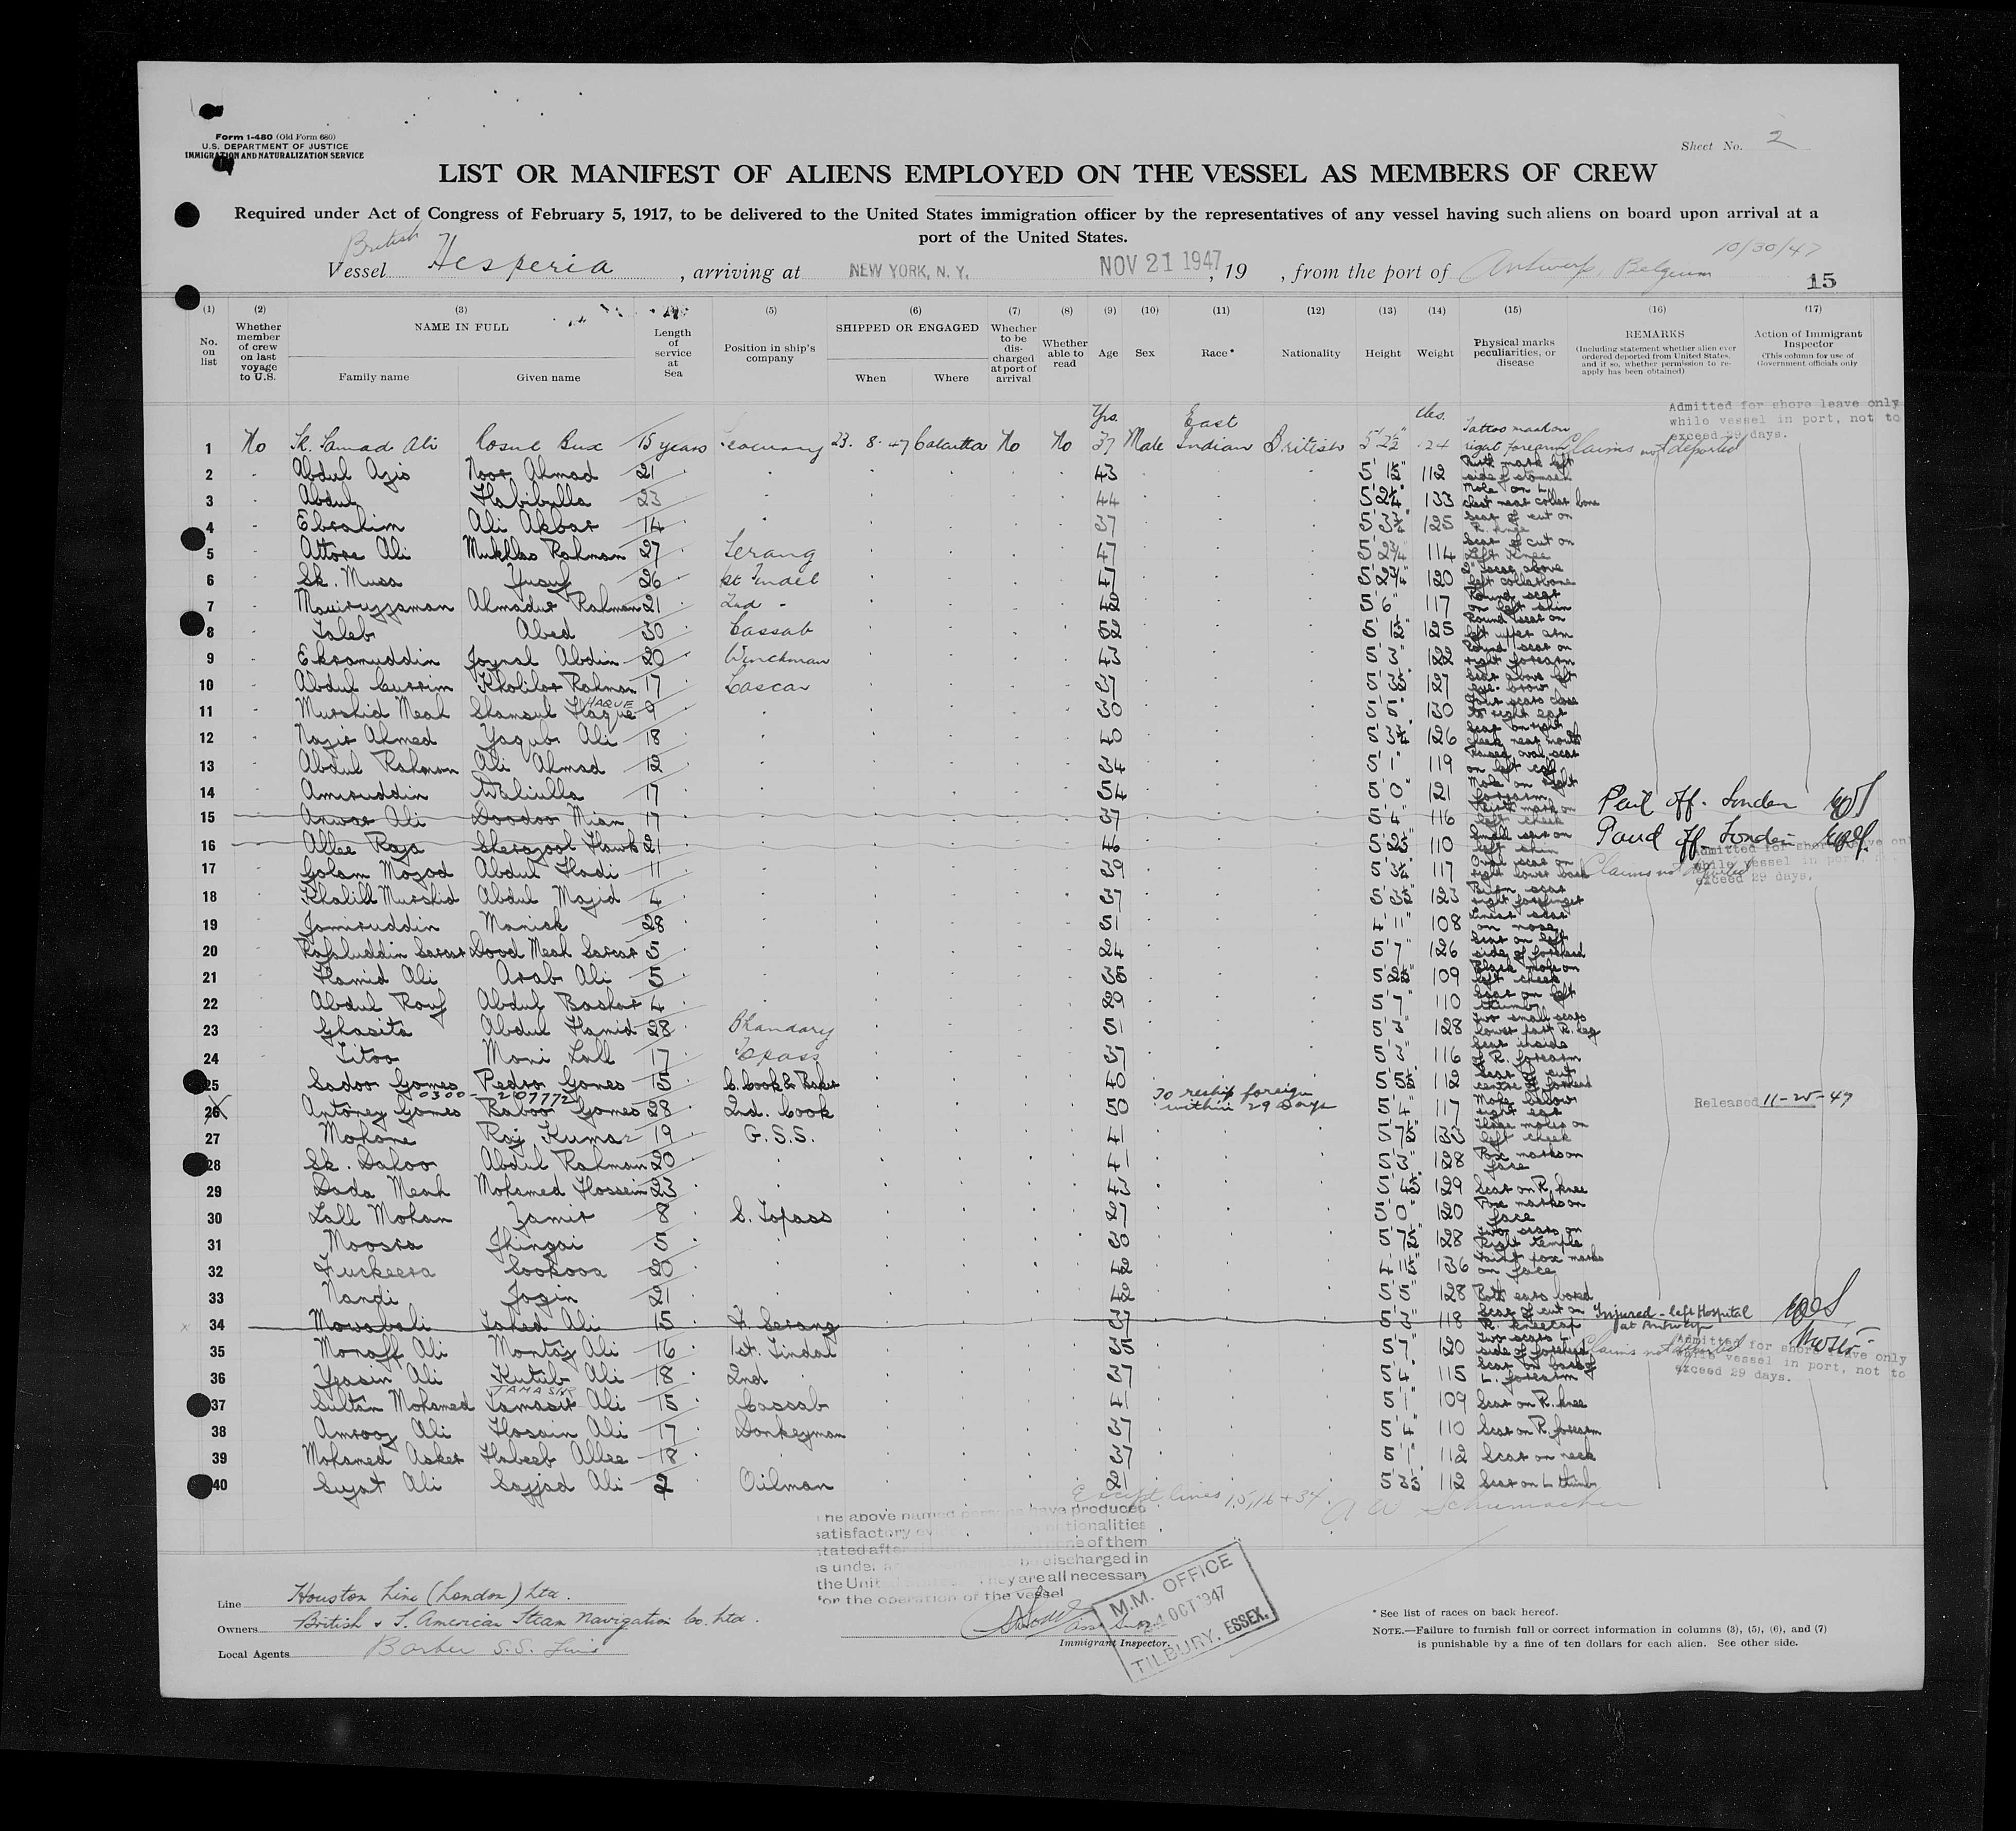 Form I-480 (Old Form 680)
U.S. DEPARTMENT OF JUSTICE
IMMIGRATION AND NATURALIZATION SERVICE
Sheet No. 2
LIST OR MANIFEST OF ALIENS EMPLOYED ON THE VESSEL AS MEMBERS OF CREW
Required under Act of Congress of February 5, 1917, to be delivered to the United States immigration officer by the representatives of any vessel having such aliens on board upon arrival at a
port of the United States.
British 10/30/47
Vessel Hesperia, arriving at NEW YORK, N. Y. NOV 21 1947, 19 , from the port of Antwerp, Belgium
15
(1) (2) (3) (5) (6) (7) (8) (9) (10) (11) (12) (13) (14) (15) (16) (17)
No. on list
Whether member of crew on last voyage to U.S.
NAME IN FULL
Family name Given name
Length of service at Sea
Position in ship's company
SHIPPED OR ENGAGED
When Where
Whether to be discharged at port of arrival
Whether able to read
Age Sex Race* Nationality Height Weight
Physical marks peculiarities, or disease
REMARKS
(Including statement whether alien ever ordered deported from United States, and if so, whether permission to reapply has been obtained)
Action of Immigrant Inspector
(This column for use of Government officials only
Admitted for shore leave only
while vessel in port, not to
exceed 29 days.
Yrs. East lbs.
1 No Sk. Samad Ali Rosul Bux 15 years 23. 8. 47 Calcutta No No 37 Male Indian British 5' 2½" 124 Tattoo mark on right forearm Claims not deported
2 Abdul Azis Noor Ahmad 21 43 5' 1½" 112 Birth mark left side of stomach
3 Abdul Habibulla 23 44 5' 2¼" 133 Mole on L. chest near collar bone
4 Ebrahim Ali Akbar 14 37 125 Scar of cut on R. knee
5 Attore Ali Mukhlas Rahman 27 Serang 47 5' 2¾" 114 Scar of cut on Left Knee
6 Sk. Musa Yusuf 26 1st Tindal 47 5' 2¾" 120 2" scar above left collarbone
7 Moniruzzaman Ahmadur Rahman 21 2nd " 42 5' 6" 117 Round scar on left shin
8 Taleb Abed 30 Cassab 52 5' 1½" 125 Round scar on left upper arm
9 Ekramuddin Joynal Abdin 20 Winchman 43 5' 3" 122 Round scar on right forearm
10 Abdul Currim Kholilar Rahman 17 Lascar 37 5' 3½" 127 Scar above left eye-brow
HAQUE
11 Murshid Meah Shamsul Haque 9 30 5' 5" 130 Four scars close to right ear
12 Nazir Ahmed Yaqub Ali 18 40 5' 3¼" 126 Scar on right cheek near mouth
13 Abdul Rahman Ali Ahmad 12 34 5' 1" 119 Raised oval scar on left calf
14 Amiruddin Waliulla 17 54 5' 0" 121 Mole on right forearm
15 Anwar Ali Doodoo Mian 17 37 5' 4" 116 Birth mark on left cheek Paid off - London
16 Allee Raja 21 46 5' 2½" 110 Small scar on left shin Paid off - London
Admitted for shore leave only
while vessel in port,
exceed 29 days.
17 Golam Mozod Abdul Hadi 11 39 5' 3¼" 117 Oval scar on right lower back Claims not deported
18 Khalill Murshid Abdul Majid 4 37 5' 3½" 123 Burn scar right forefinger
19 Jomiruddin Manick 28 51 4' 11" 108 Linear scar on nose
20 Rafaluddin Sarcar Dood Meah Sarcar 5 24 5' 7" 126 Scar on left side of forehead
21 Hamid Ali Arab Ali 5 36 5' 2½" 109 Black mole on left cheek
22 Abdul Rouf Abdul Bashar 4 29 5' 7" 110 Scar on left thumb
23 Ghasita Abdul Hamid 28 Bhandary 51 5' 3" 128 Two small scars lower part R. leg
24 Titoo Moni Lall 17 Topass 37 5' 3" 116 Scar inside of R. forearm
25 Sadoo Gomes Pedro Gomes 15 C. Cook & Baker 40 5' 5½" 112 Scar of cut centre of forehead
0300 - 207772 To reship foreign
26 Antoney Gomes Baboo Gomes 28 2nd. Cook 50 within 29 Days 5' 4" 117 Mole below right ear Released 11-25-47
27 Mohone Raj Kumar 19 G.S.S. 41 5' 7½" 133 Three moles on left cheek
28 Sk. Dahoo Abdul Rahman 20 41 5' 3" 128 Pox marks on face
29 Dada Meah Mohamed Hossein 23 43 5' 4½" 129 Scar on R. knee
30 Lall Mohan Jamir 8 S. Topass 27 5' 0" 120 Pox marks on face
31 Moosra Jhingai 5 30 5' 7½" 128 Two scars on Right temple
32 Fuckeera Sookooa 20 42 4' 11½" 136 Faint pox marks on face
33 Nandi Jogin 21 42 5' 5" 128 Both ears bored
34 Mowabali Jahed Ali 15 Fr. Serang 37 5' 3" 118 Scar of cut on R. kneecap Injured - left Hospital at Antwerp
35 Monaff Ali Montaz Ali 16 1st. Tindal 35 5' 7" 120 Two scars L. side of forehead Claims not deported
Admitted for shore leave only
while vessel in port, not to
exceed 29 days.
36 Yeasin Ali Kutub Ali 18 2nd 37 5' 4" 115 Scar on back of L. forearm
TAMASIR
37 Sultan Mohamed Tamasir Ali 15 Cassab 41 5' 1" 109 Scar on R. knee
38 Amrooz Ali Hosain Ali 17 Donkeyman 37 5' 4" 110 Scar on R. forearm
39 Mohamed Asker Hubeeb Allee 18 37 5' 1" 112 Scar on neck
40 Sujat Ali Sajjad Ali 2 Oilman 21 5' 3½" 112 Scar on L thumb
Except lines 15, 16 + 34. A W Schumacher
The above named persons have produced
satisfactory nationalities
stated after none of them
is under be discharged in
the United States. They are all necessary
for the operation of the vessel
Line Houston Line (London) Ltd.
Owners British & S. American Steam Navigation Co. Ltd.
Local Agents Barber S.S. Line
Immigrant Inspector.
M.M. OFFICE
OCT 1947
TILBURY, ESSEX.
* See list of races on back hereof.
NOTE.—Failure to furnish full or correct information in columns (3), (5), (6), and (7)
is punishable by a fine of ten dollars for each alien. See other side.